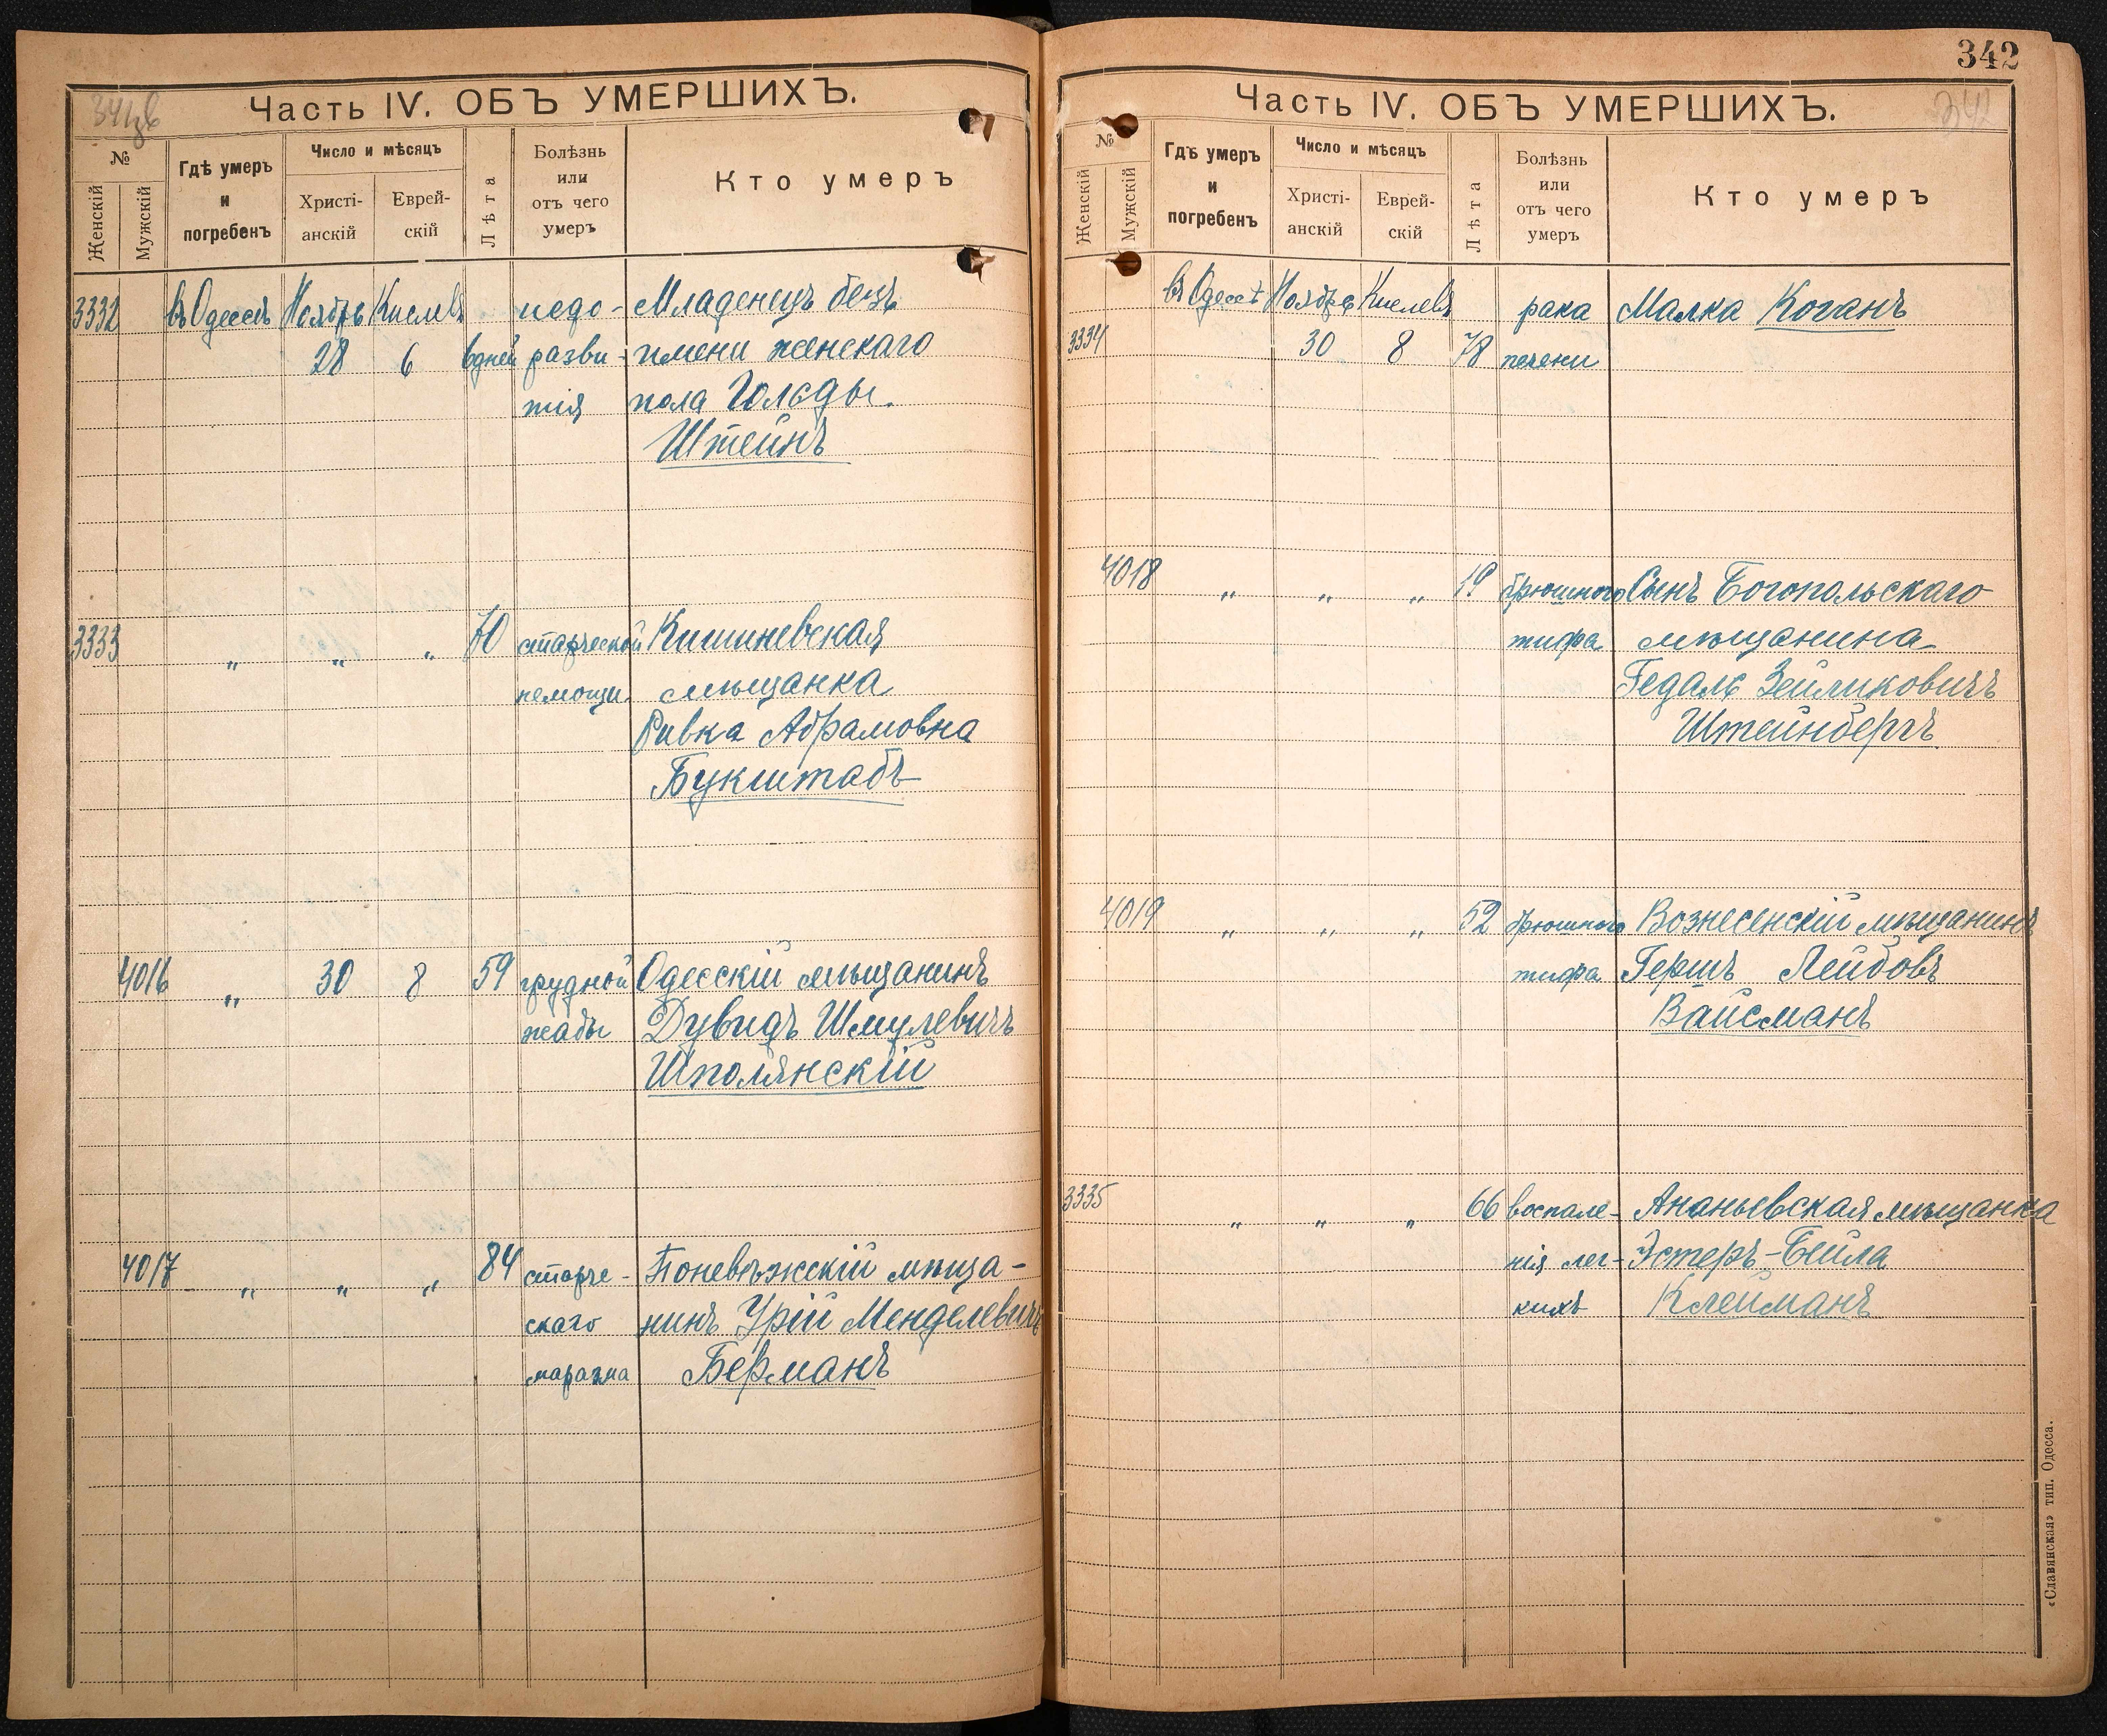 341 об
Часть IV. ОБЪ УМЕРШИХЪ.
№
Женскій
Мужскій
Гдѣ умеръ
и
погребенъ
Число и мѣсяцъ
Христі-
анскій
Еврей-
скій
Лѣта
Болѣзнь
или
отъ чего
умеръ
Кто умеръ
3332 въ Одессѣ Ноябрь Кислевъ недо- Младенецъ безъ
28 6 6 дней разви- имени женскаго
тія пола Гольды
Штейнъ
3333 „ „ „ 70 старческой Кишиневская
немощи мѣщанка
Ривка Абрамовна
Букштабъ
4016 „ 30 8 59 грудной Одесскій мѣщанинъ
жабы Дувидъ Шмулевичъ
Шполянскій
4017 „ „ „ 84 старче- Поневѣжскій мѣща-
скаго нинъ Урій Менделевичъ
маразма Берманъ
342
Часть IV. ОБЪ УМЕРШИХЪ.
342
№
Женскій
Мужскій
Гдѣ умеръ
и
погребенъ
Число и мѣсяцъ
Христі-
анскій
Еврей-
скій
Лѣта
Болѣзнь
или
отъ чего
умеръ
Кто умеръ
въ Одессѣ Ноябрь Кислевъ рака Малка Коганъ
3334 30 8 78 печени
4018 „ „ „ 19 брюшного Сынъ Богопольскаго
тифа мѣщанина
Гедаль Зейликовичъ
Штейнбергъ
4019 „ „ „ 52 брюшного Вознесенскій мѣщанинъ
тифа Гершъ Лейбовъ
Вайсманъ
3335 „ „ „ 66 воспале- Ананьевская мѣщанка
нія лег- Эстеръ-Бейла
кихъ Клейманъ
«Славянская» тип. Одесса.